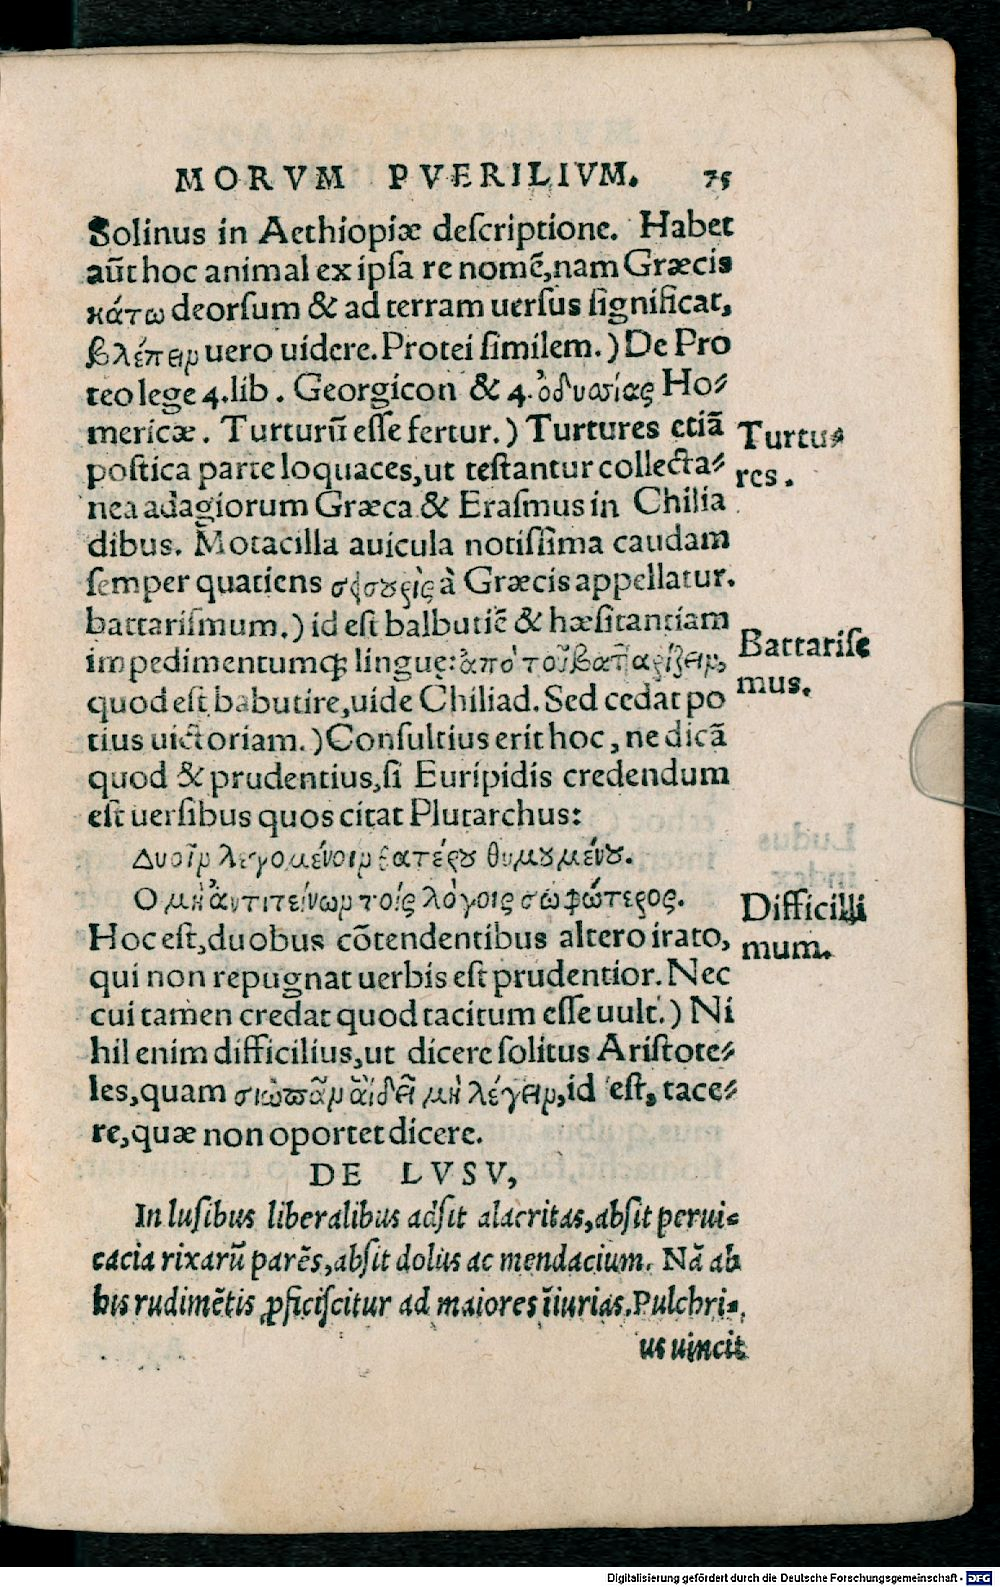 MORVM PVERILIVM. 75
Solinus in Aethiopiæ deſcriptione. Habet
aūt hoc animal ex ipſa re nomē, nam Græcis
κάτω deorſum & ad terram uerſus ſignificat,
βλέπειν uero uidere. Protei ſimilem.) De Pro
teo lege 4. lib. Georgicon & 4. ὀδυσσίας Ho⸗
mericæ. Turturū eſſe fertur.) Turtures etiā
poſtica parte loquaces, ut teſtantur collecta⸗
nea adagiorum Græca & Eraſmus in Chilia
dibus. Motacilla auicula notiſſima caudam
ſemper quatiens σεισουρὶς à Græcis appellatur.
battariſmum.) id eſt balbutiē & hæſitantiam
impedimentumq́; linguę: ἀπὸ τοῦ βατταρίζειν,
quod eſt babutire, uide Chiliad. Sed cedat po
tius uictoriam.) Conſultius erit hoc, ne dicā
quod & prudentius, ſi Euripidis credendum
eſt uerſibus quos citat Plutarchus:
Δυοῖν λεγομένοιν θατέρου θυμουμένου.
Ο μὴ ἀντιτείνων τοῖς λόγοις σωφώτερος.
Hoc eſt, duobus cōtendentibus altero irato,
qui non repugnat uerbis eſt prudentior. Nec
cui tamen credat quod tacitum eſſe uult.) Ni
hil enim difficilius, ut dicere ſolitus Ariſtote⸗
les, quam σιωπᾶν ἃ δεῖ μὴ λέγειν, id eſt, tace⸗
re, quæ non oportet dicere.
DE LVSV,
In luſibus liberalibus adſit alacritas, abſit perui⸗
cacia rixarū parēs, abſit dolus ac mendacium. Nā ab
his rudimētis ꝓficiſcitur ad maiores īiurias. Pulchri⸗
us uincit
Turtu⸗
res.
Battariſ
mus.
Difficilli
mum.
Digitalisierung gefördert durch die Deutsche Forschungsgemeinschaft - DFG